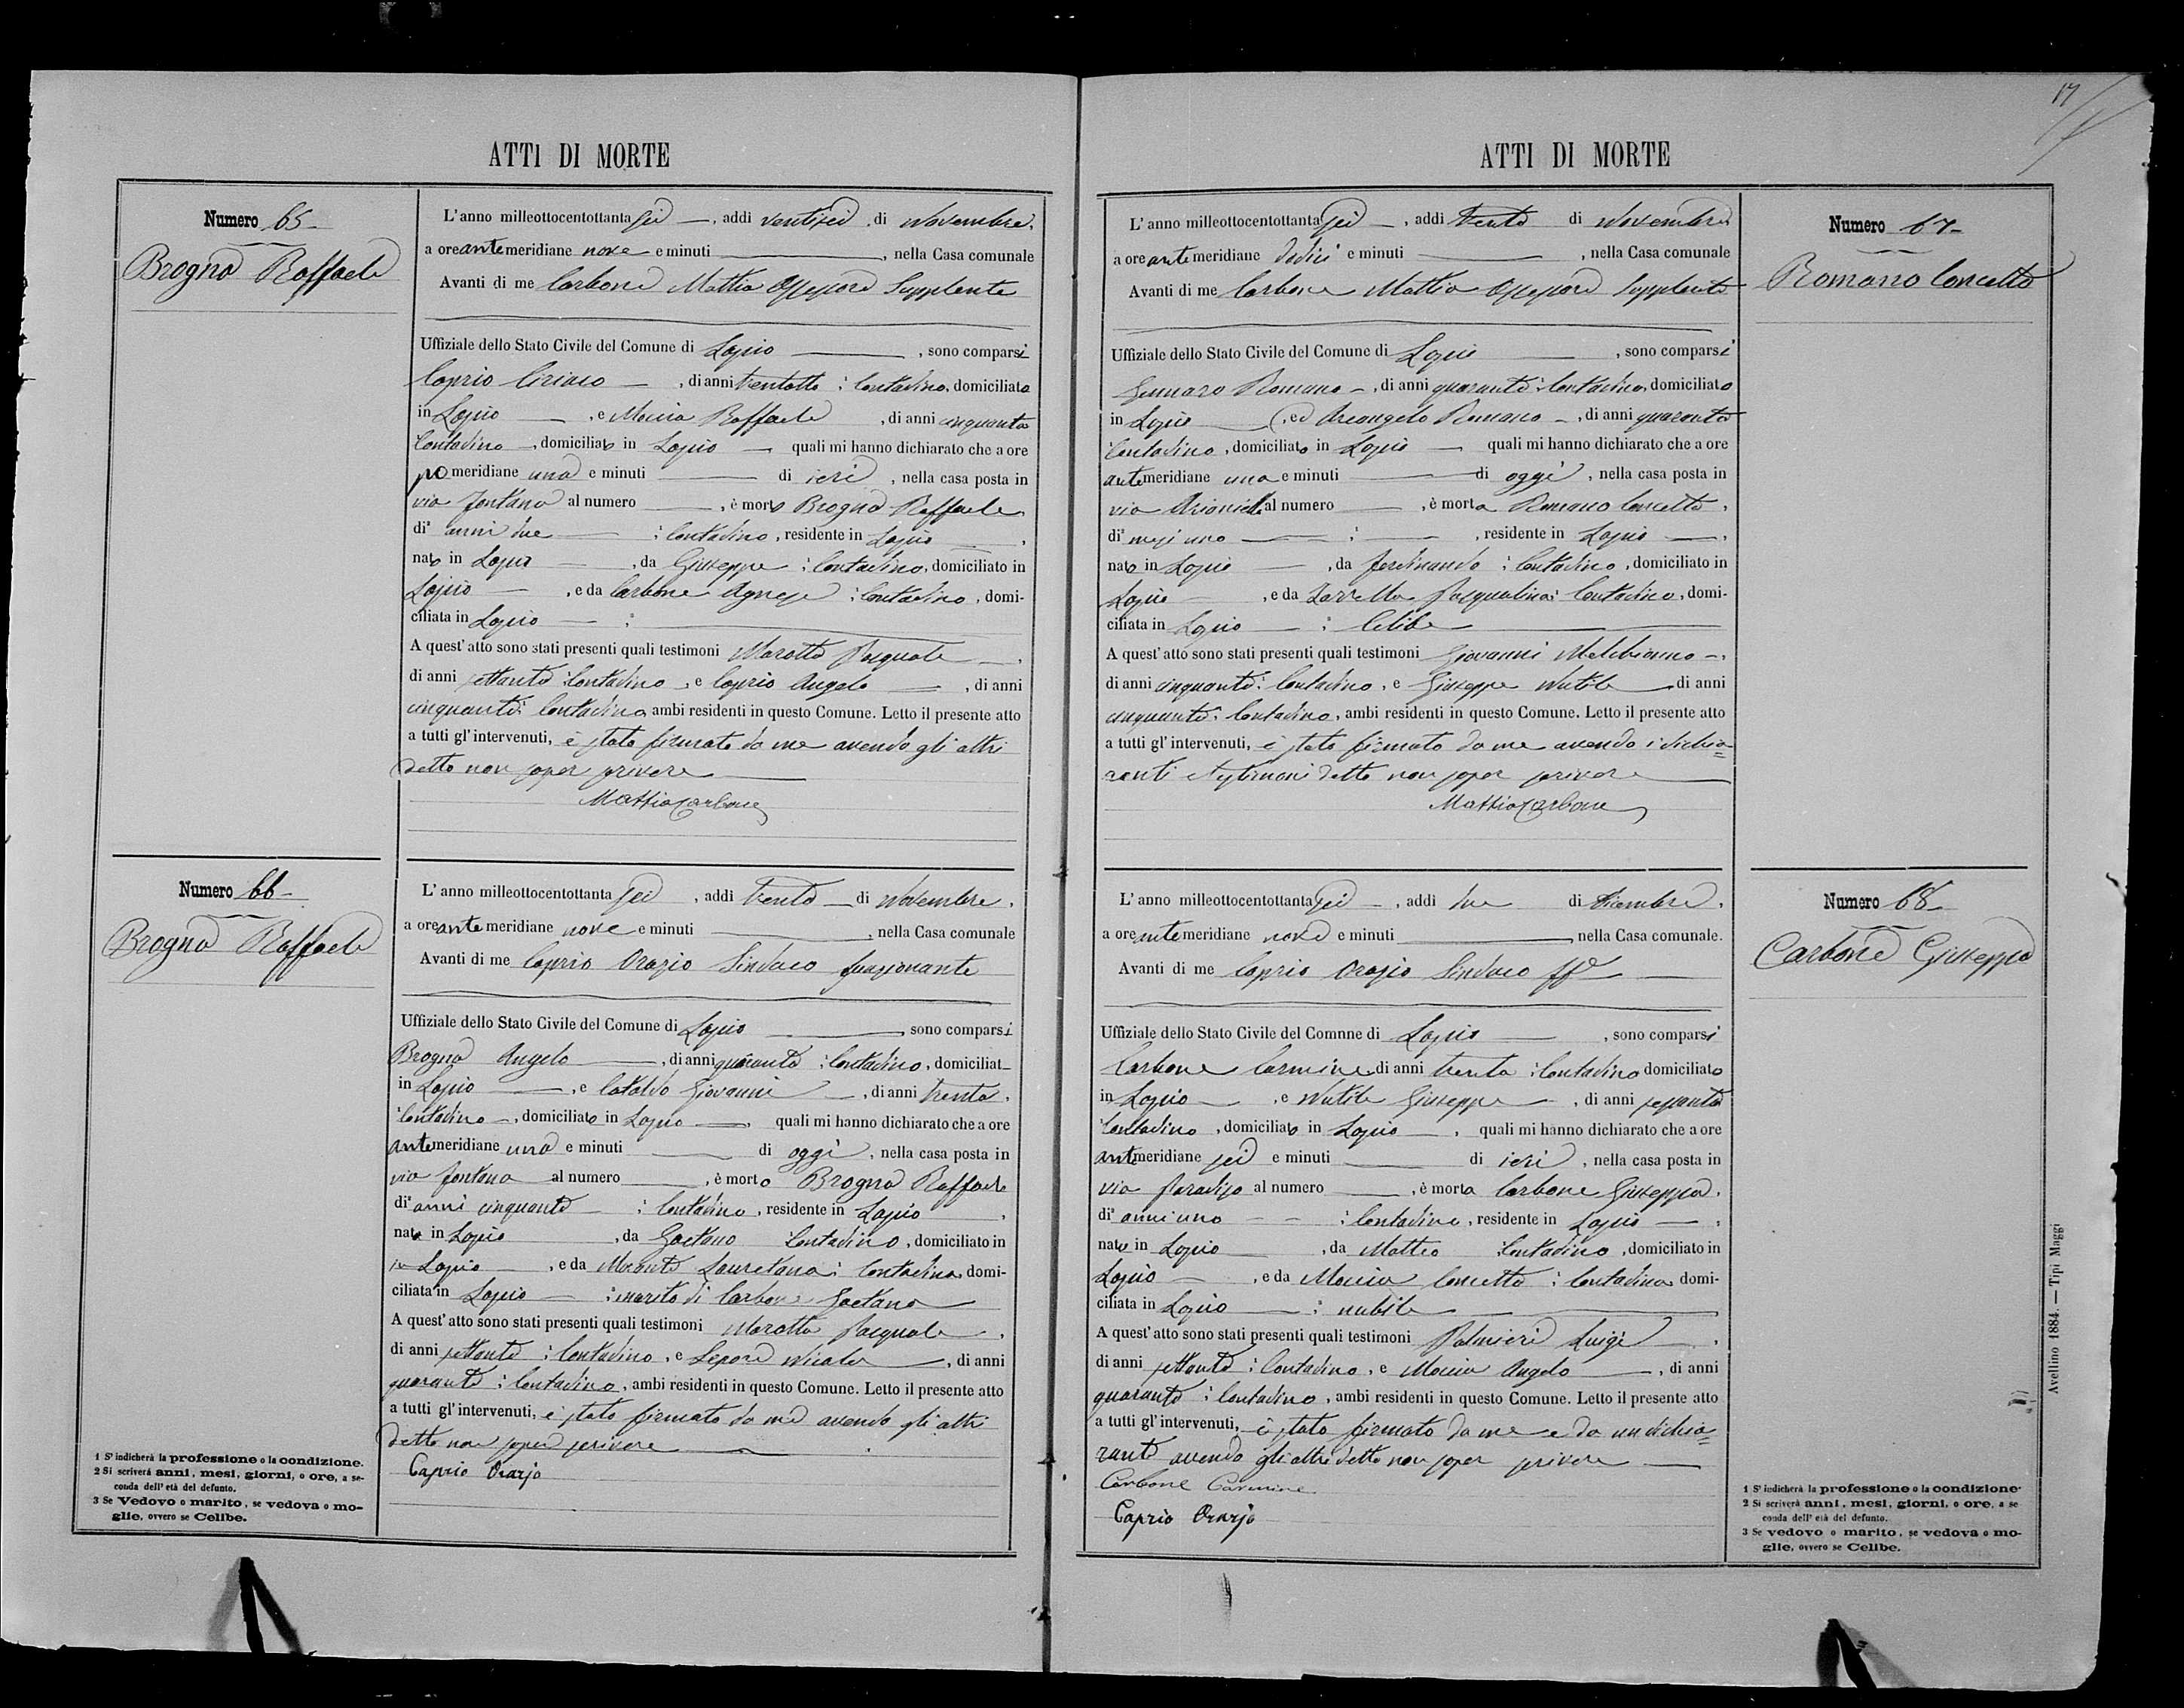 ATTI DI MORTE
Numero 65
Brogna Raffaele
L'anno milleottocentottantasei, addi ventisei di Novembre,
a ore antemeridiane nove e minuti, nella Casa comunale
Avanti di me Carbone Mattia Assessore Supplente
Uffiziale dello Stato Civile del Comune di Lapio, sono comparsi
Caprio Ciriaco, di anni trentotto: Contadino, domiciliato
in Lapio, e Maccia Raffaele, di anni cinquanta
Contadino, domiciliato in Lapio quali mi hanno dichiarato che a ore
pomeridiane una e minuti di ieri, nella casa posta in
via Fontana al numero, è morto Brogna Raffaele
di² anni due: Contadino, residente in Lapio,
nato in Lapio, da Giuseppe: Contadino, domiciliato in
Lapio, e da Carbone Agnese: Contadina, domi-
ciliata in Lapio
A quest'atto sono stati presenti quali testimoni Marotta Pasquale,
di anni settanta: Contadino, e Caprio Angelo, di anni
cinquanta: Contadino, ambi residenti in questo Comune. Letto il presente atto
a tutti gl'intervenuti, è stato firmato da me avendo gli altri
detto non saper scrivere
Mattia Carbone
Numero 66
Brogna Raffaele
L'anno milleottocentottantasei, addi trenta di Novembre,
a ore antemeridiane nove e minuti, nella Casa comunale
Avanti di me Caprio Orazio Sindaco funzionante
Uffiziale dello Stato Civile del Comune di Lapio, sono comparsi
Brogna Angelo, di anni quaranta: Contadino, domiciliat
in Lapio, e Cataldo Giovanni, di anni trenta,
Contadino, domiciliato in Lapio, quali mi hanno dichiarato che a ore
antemeridiane una e minuti di oggi, nella casa posta in
via Fontana al numero, è morto Brogna Raffaele
di² anni cinquanta: Contadino, residente in Lapio,
nato in Lapio, da Gaetano Contadino, domiciliato in
in Lapio, e da Lauretana: Contadina, domi-
ciliata in Lapio: marito di Carbone Gaetana
A quest'atto sono stati presenti quali testimoni Marotta Pasquale,
di anni settanta: Contadino, e Lepore Nicola, di anni
quaranta: Contadino, ambi residenti in questo Comune. Letto il presente atto
a tutti gl'intervenuti, è stato firmato da me avendo gli altri
detto non saper scrivere
Caprio Orazio
1 S'indicherà la professione o la condizione.
2 Si scriverà anni, mesi, giorni, o ore, a se-
conda dell'età del defunto.
3 Se Vedovo o marito, se vedova o mo-
glie, ovvero se Celibe.
17
ATTI DI MORTE
Numero 67
Romano Concetta
L'anno milleottocentottantasei, addi trenta di Novembre
a ore antemeridiane dodici e minuti, nella Casa comunale
Avanti di me Carbone Mattia Assessore Supplente
Uffiziale dello Stato Civile del Comune di Lapio, sono comparsi
Gennaro Romano, di anni quaranta: Contadino, domiciliato
in Lapio, ed Arcangelo Romano, di anni quaranta
Contadino, domiciliato in Lapio quali mi hanno dichiarato che a ore
antemeridiane una e minuti di oggi, nella casa posta in
via al numero, è morta Romano Concetta,
di² mesi uno:, residente in Lapio,
nato in Lapio, da Ferdinando: Contadino, domiciliato in
Lapio, e da Zarrella Pasqualina: Contadina, domi-
ciliata in Lapio: Celibe
A quest'atto sono stati presenti quali testimoni Giovanni Melchionno,
di anni cinquanta: Contadino, e Giuseppe Nutile di anni
cinquanta: Contadino, ambi residenti in questo Comune. Letto il presente atto
a tutti gl'intervenuti, è stato firmato da me avendo i dichia=
ranti e testimoni detto non saper scrivere
Mattia Carbone
Numero 68
Carbone Giuseppa
L'anno milleottocentottantasei, addi due di Dicembre,
a ore antemeridiane nove e minuti, nella Casa comunale.
Avanti di me Caprio Orazio Sindaco ff
Uffiziale dello Stato Civile del Comnne di Lapio, sono comparsi
Carbone Carmine di anni trenta: Contadino domiciliato
in Lapio, e Nutile Giuseppe, di anni sessanta
Contadino, domiciliato in Lapio, quali mi hanno dichiarato che a ore
antimeridiane sei e minuti di ieri, nella casa posta in
via Paradiso al numero, è morta Carbone Giuseppa,
di² anni uno: Contadina, residente in Lapio,
nata in Lapio, da Matteo Contadino, domiciliato in
Lapio, e da Maccia Concetta: Contadina domi-
ciliata in Lapio: nubile
A quest'atto sono stati presenti quali testimoni Palmieri Luigi,
di anni settanta: Contadino, e Maccia Angelo, di anni
quaranta: Contadino, ambi residenti in questo Comune. Letto il presente atto
a tutti gl'intervenuti, è stato firmato da me e da un dichia=
rante avendo gli altri detto non saper scrivere
Carbone Carmine
Caprio Orazio
1 S'indicherà la professione o la condizione.
2 Si scriverà anni, mesi, giorni, o ore, a se
conda dell'età del defunto.
3 Se vedovo o marito, se vedova o mo-
glie, ovvero se Celibe.
Avellino 1884. — Tipi Maggi